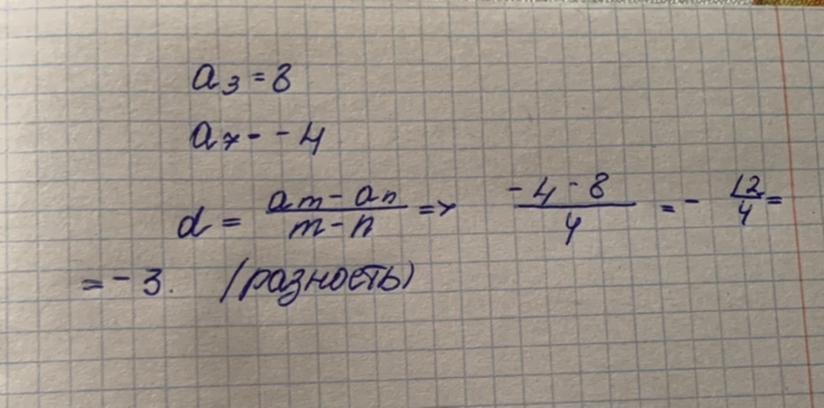 a₃ = 8
a₇ = -4
d = (aₘ - aₙ)/(m - n) => (-4 - 8)/4 = - 12/4 =
= -3. (разность)